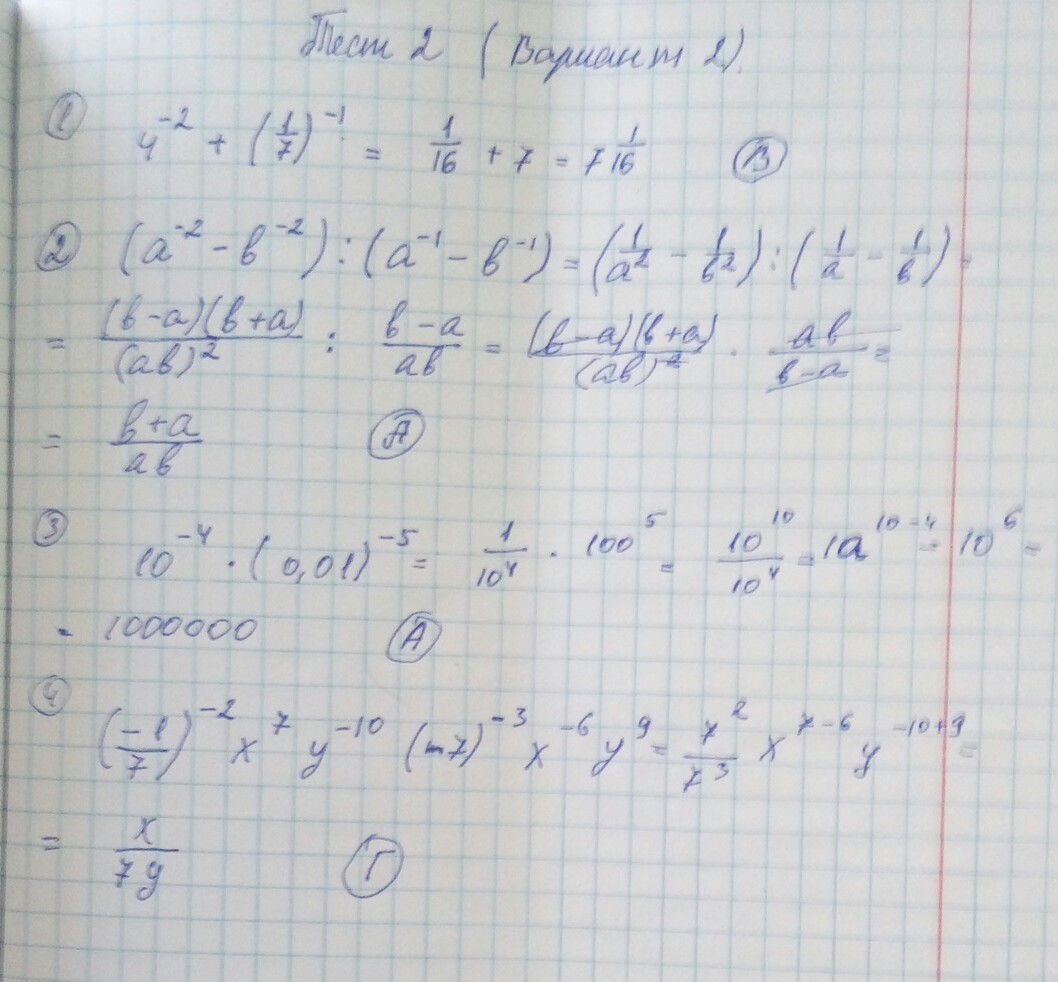 Тест 2 (Вариант 2).
① 4⁻² + (1/7)⁻¹ = 1/16 + 7 = 7 1/16 Ⓑ
② (a⁻² - b⁻²) : (a⁻¹ - b⁻¹) = (1/a² - 1/b²) : (1/a - 1/b) =
= (b-a)(b+a)/(ab)² : b-a/ab = (b-a)(b+a)/(ab)² · ab/b-a =
= b+a/ab Ⓐ
③ 10⁻⁴ · (0,01)⁻⁵ = 1/10⁴ · 100⁵ = 10¹⁰/10⁴ = 10¹⁰⁻⁴ = 10⁶ =
= 1000000 Ⓐ
④ (-1/7)⁻² x⁷ y⁻¹⁰ (7)⁻³ x⁻⁶ y⁹ = 7²/7³ x⁷⁻⁶ y⁻¹⁰⁺⁹ =
= x/7y Ⓖ